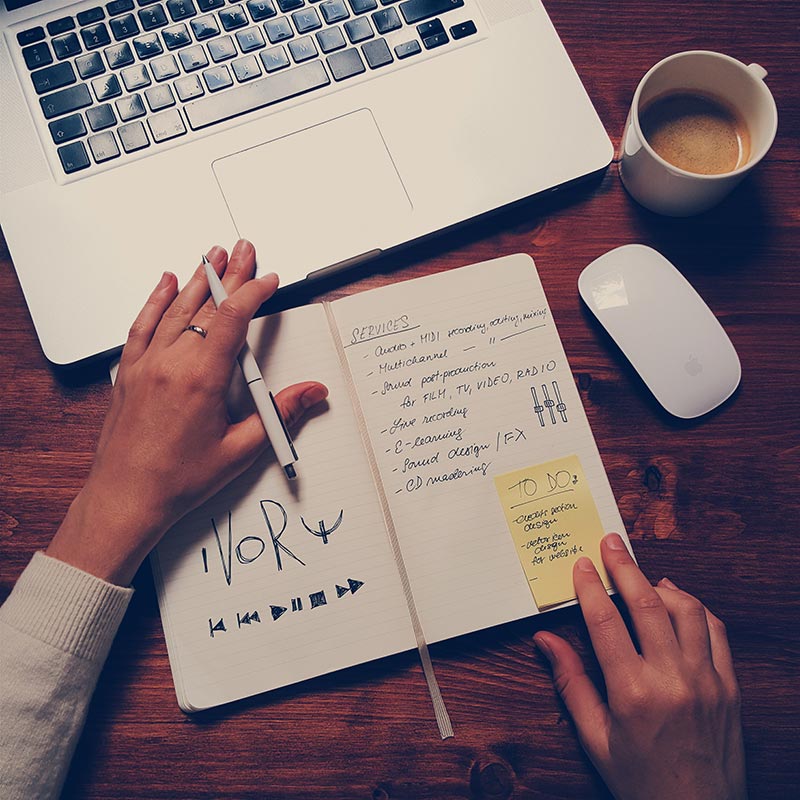 IVORY
SERVICES
- Audio + MIDI recording, editing, mixing
- Multichannel — " —
- Sound post-production
for FILM, TV, VIDEO, RADIO
- Live recording
- E-learning
- Sound design / FX
- CD mastering
TO DO:
- section
design
- vector icon
design
for website
-